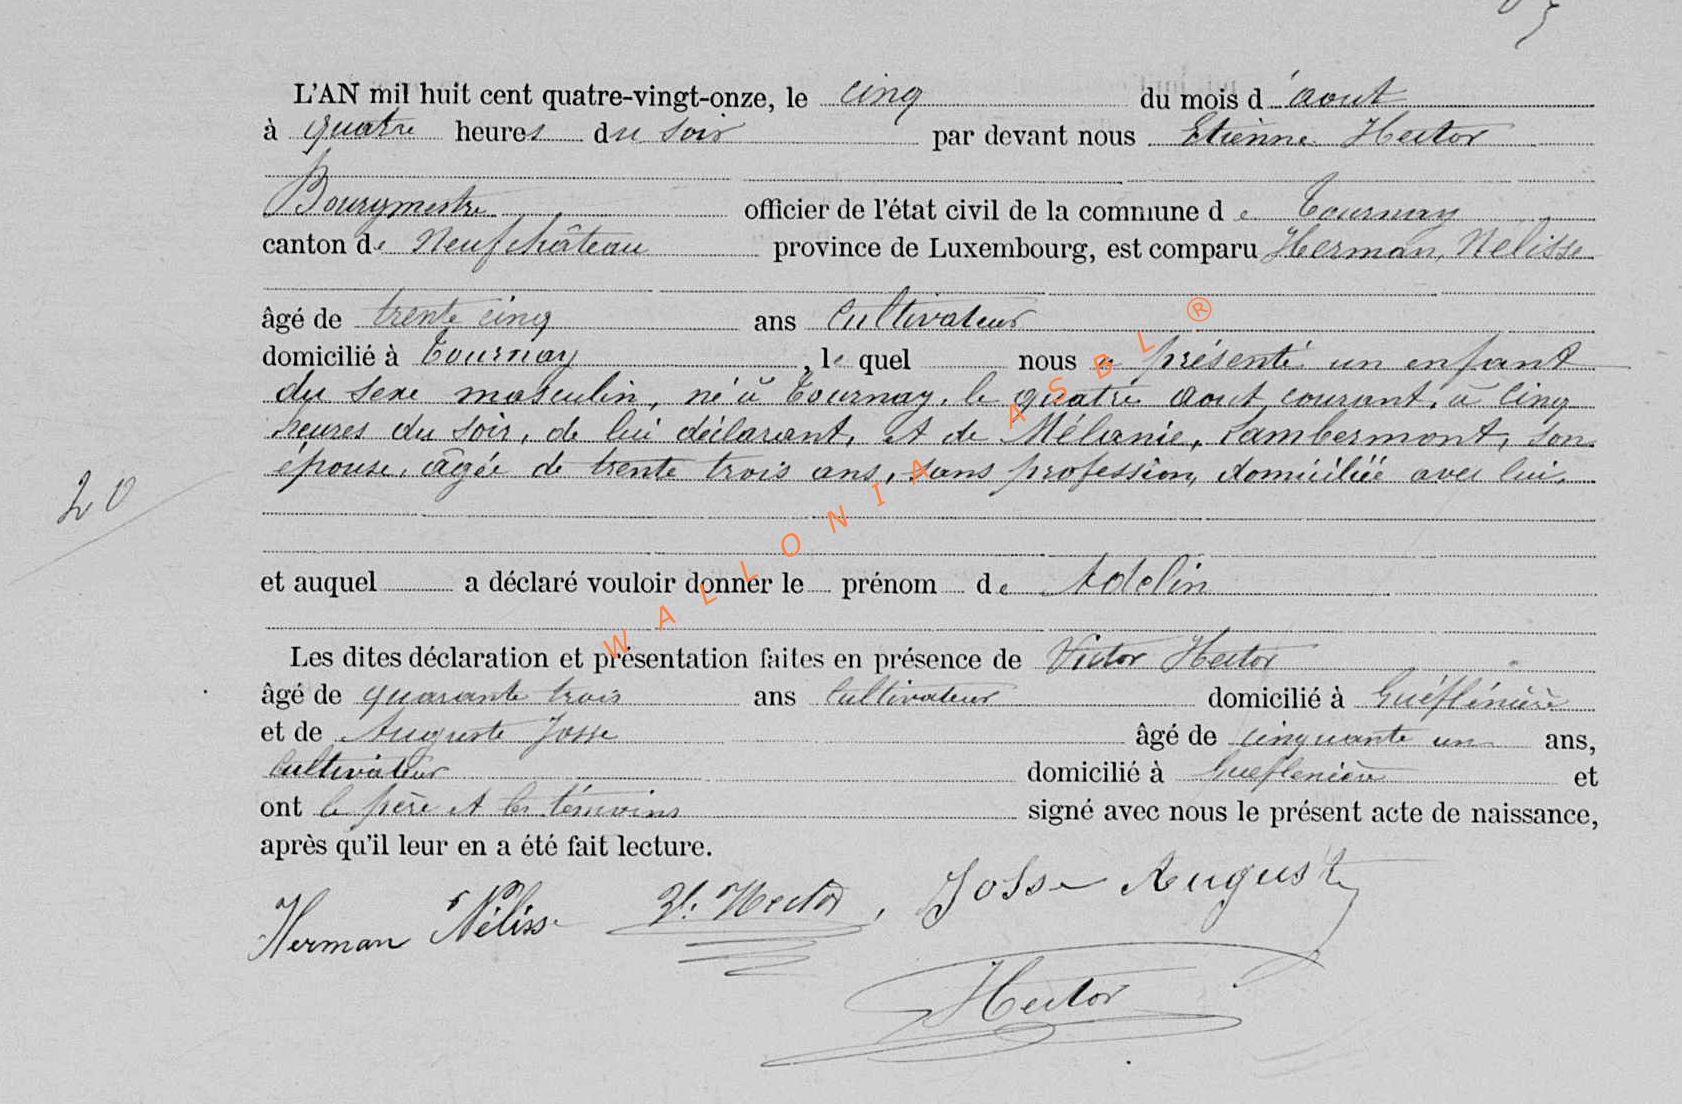 L'AN mil huit cent quatre-vingt-onze, le cinq du mois d'aout
à quatre heures du soir par devant nous Etienne Hector
Bourgmestre officier de l'état civil de la commune de Tournay
canton de Neufchâteau province de Luxembourg, est comparu Herman, Nélisse
âgé de trente cinq ans Cultivateur
domicilié à Tournay, le quel nous a présenté un enfant
du sexe masculin, né à Tournay, le quatre aout courant, à cinq
heures du soir, de lui déclarant, et de Mélanie, Lambermont, son
épouse, âgée de trente trois ans, sans profession, domiciliée avec lui,
20
et auquel a déclaré vouloir donner le prénom de Adelin
Les dites déclaration et présentation faites en présence de Victor Hector
âgé de quarante trois ans Cultivateur domicilié à
et de Auguste Josse âgé de cinquante un ans,
Cultivateur domicilié à et
ont le père et les témoins signé avec nous le présent acte de naissance,
après qu'il leur en a été fait lecture.
Herman Nélisse V. Hector, Josse Auguste
Hector
WALLONIA ASBL ®